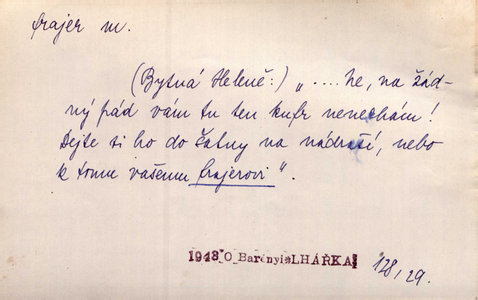 frajer m.
(Bytná Heleně:) „....Ne, na žád-
ný pád vám tu ten kufr nenechám!
Dejte si ho do šatny na nádraží, nebo
k tomu vašemu frajerovi".
1943 O Barényi: LHÁŘKA
128, 29.